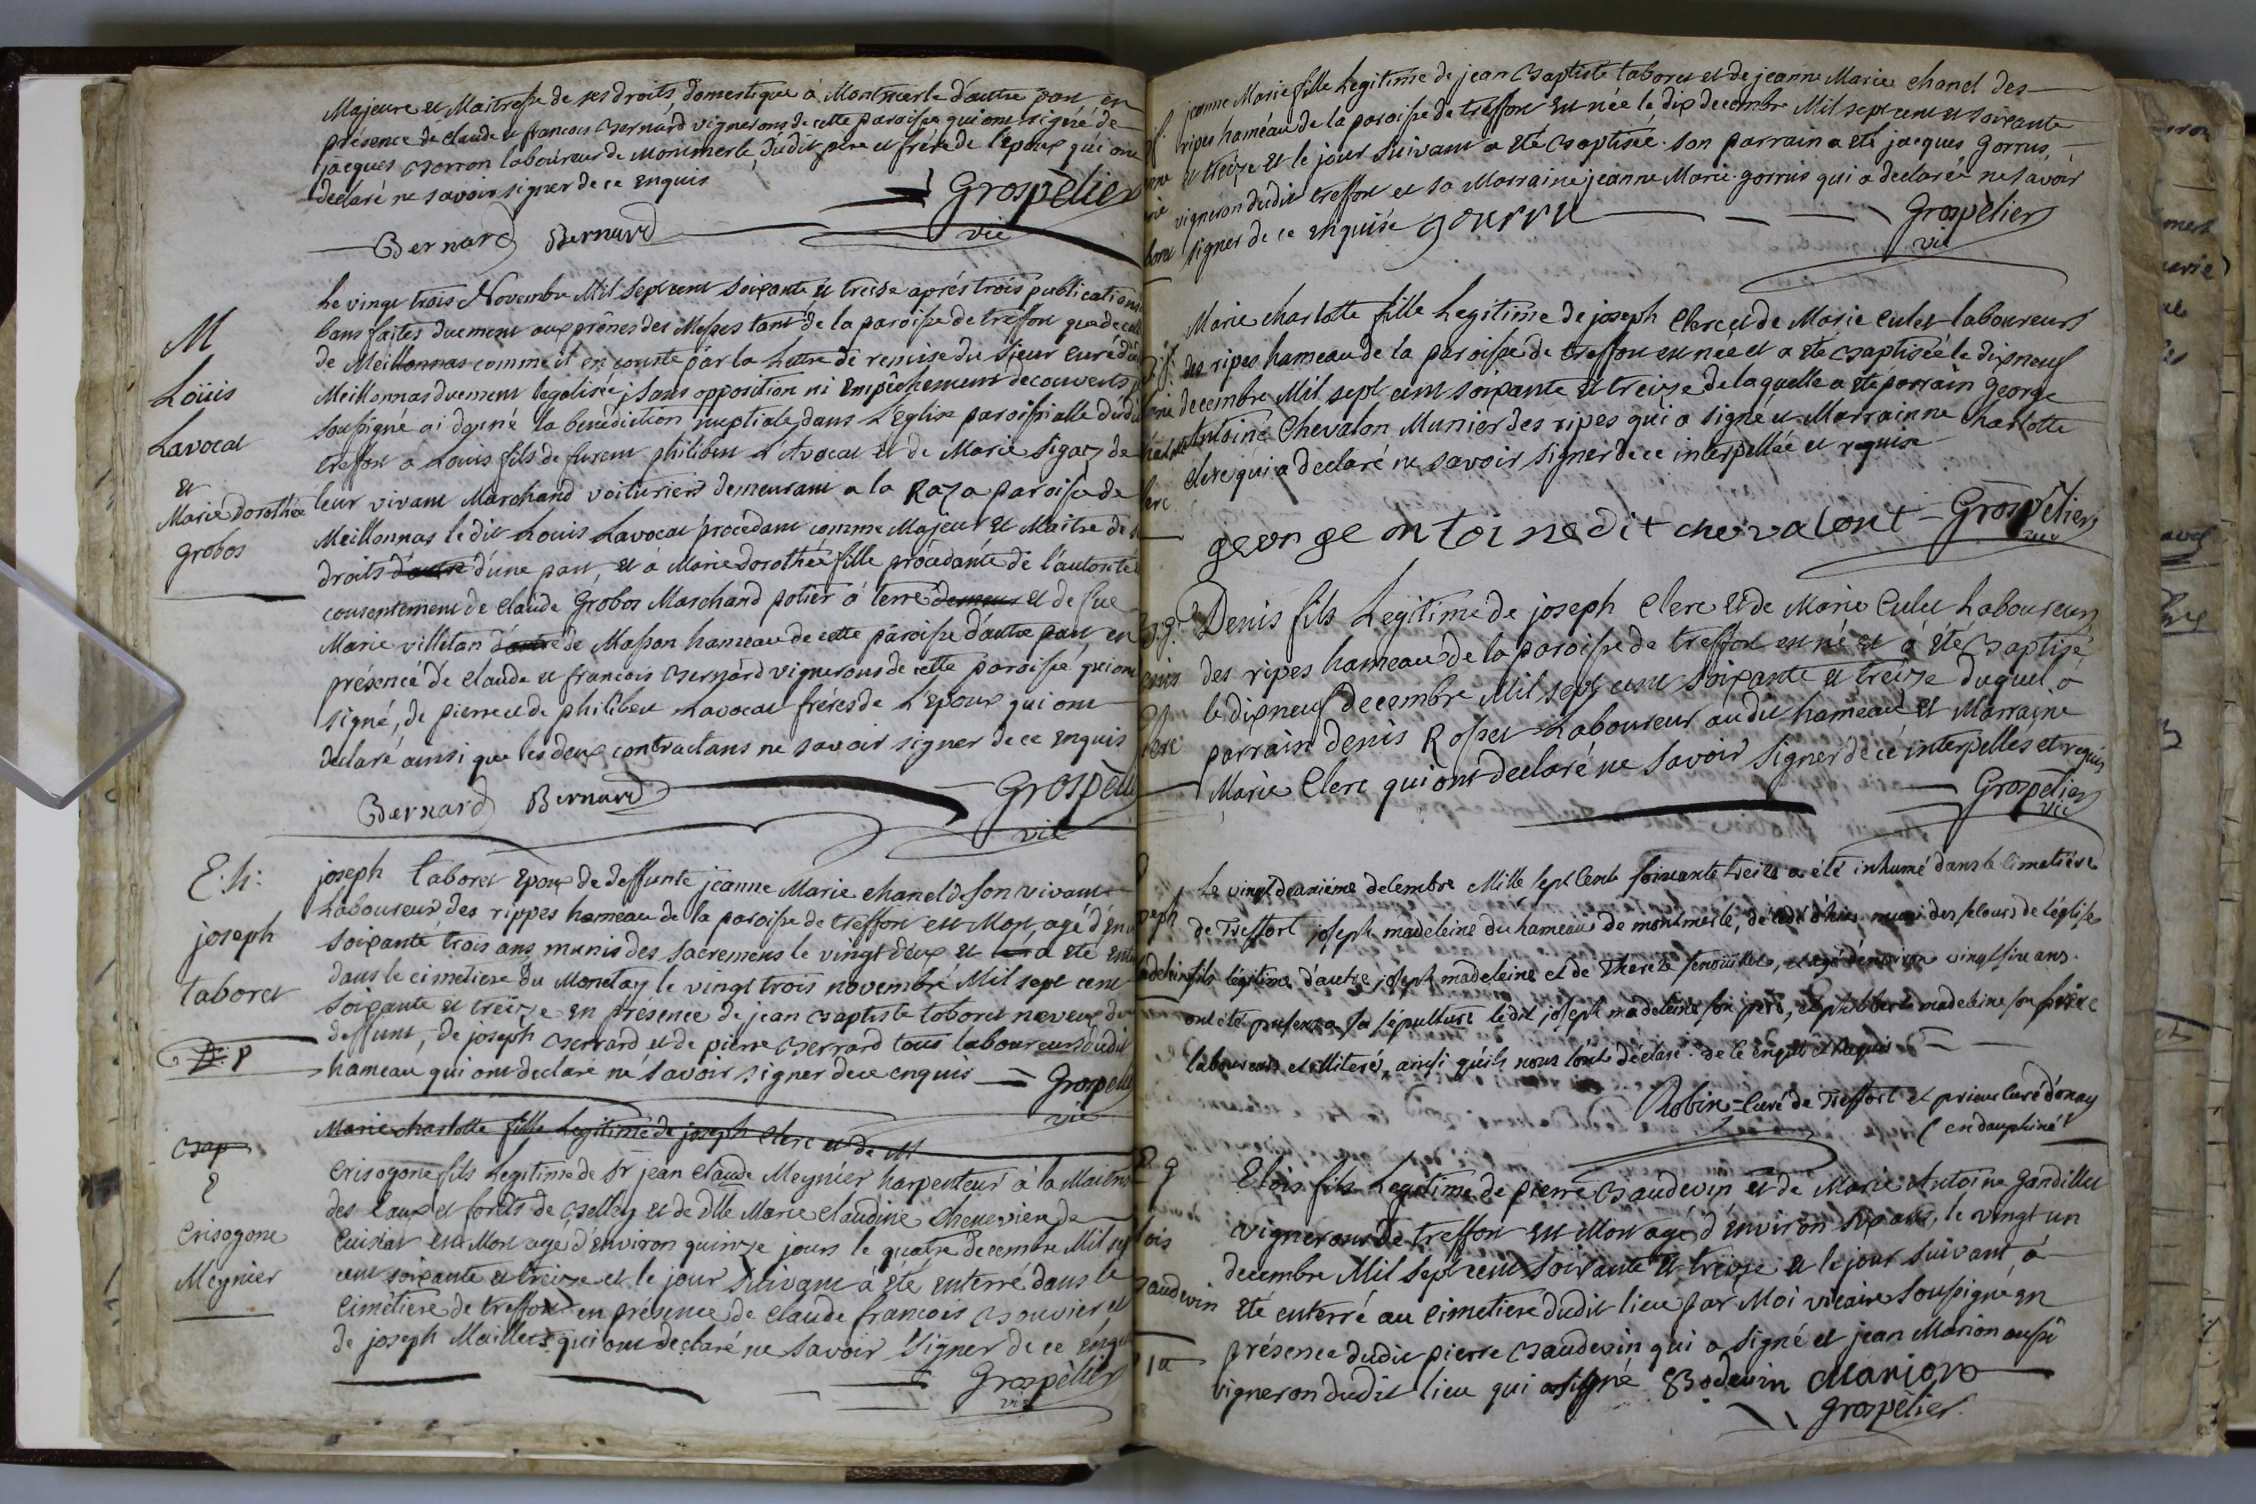 Majeure et Maitresse de ses droits, domestique à Montmerle d'autre part en
présence de claude et francois Bernard vignerons de cette paroisse qui ont signé de
jacques Borron laboureur de Montmerle, dudit pere et frère de l'epoux qui ont
declaré ne savoir signer de ce enquis
Grospèlier
Bernard Bernard vic
M
Loüis
Lavocat
et
Marie Dorothée
grobos
Le vingt trois Novembre Mil sept cent soixante et treise aprés trois publications
bans faites duement aux prônes des Messes tant de la paroisse de treffort que de celle
de Meillonnas comme il en conste par la Lettre de remise du sieur curé du
Meillonnas duement legalisée, sans opposition ni Empêchement decouverts
soussigné ai donné la benediction nuptiale, dans L'Eglise paroissialle dudit
treffort a Louis fils de furent philibert L'Avocat et de Marie Sigaz de
leur vivant Marchand voituriers demeurant a la Raza paroisse de
Meillonnas ledit Louis Lavocat procédant comme Majeur et Maitre de
droits d'autre d'une part, et à Marie dorothée fille procédante de l'autorité
consentement de claude Grobos Marchand potier à terre demeur et de fue
Marie villetan d'autre de Masson hameau de cette paroisse d'autre part en
présence de claude et francois Bernard vignerons de cette paroisse, qui ont
signé, de pierre et de philibert Lavocat fréres de L'epoux qui ont
declaré ainsi que les deux contractans ne savoir signer de ce enquis
Bernard Bernard Grospèlie
vic
E. h:
joseph
taboret
joseph taboret Epoux de deffunte jeanne Marie chanel de son vivant
Laboureur des rippes hameau de la paroisse de treffort est Mort agé d'env
soixante trois ans munis des sacremens le vingt deux et a été ente
dans le cimetiere du Monetay le vingt trois novembre Mil sept cent
soixante et treize en présence de jean Baptiste taboret neveux du
deffunt, de joseph Berrard et de pierre Berrard tous laboureurs dudit
hameau qui ont declaré ne savoir signer de ce enquis Grospelie
vic
Bap
Marie charlotte fille Legitime de joseph Clerc et de M
E
Crisogone
Meynier
Crisogone fils Legitime de Sr jean claude Meynier harpenteur à la Maitrise
des Eaux et forêts de Belley et de dlle Marie claudine Chenevier de
Cuisiat est Mort agé d'environ quinze jours le quatre decembre Mil sep
cent soixante et treize et le jour Suivant à été enterré dans le
Cimétiere de treffort en présence de claude francois Bouvier et
de joseph Maillet qui ont declaré ne savoir signer de ce enquis
Grospèlier
vic
jeanne Marie fille Legitime de jean Baptiste taboret et de jeanne Marie chanel des
ripes haméau de la paroisse de treffort est née le dix decembre Mil sept cent et soixante
et treize et le jour suivant a eté Baptisée. son parrain a eté jacques gorrus,
vigneron dudit treffort et sa Marraine jeanne Marie gorrus qui a declarée ne savoir
signer de ce enquise gourru Grospèlier
vic
Marie charlotte fille Legitime de joseph Clerc et de Marie Culet laboureurs
des ripes hameau de la paroisse de treffort est née et a été Baptisée le dixneuf
decembre Mil sept cent soixante et treize de laquelle a été parrain George
Antoine Chevalon Munier des ripes qui a signé et Marrainne charlotte
clerc qui a declaré ne savoir signer de ce interpellée et requise
george antoine dit chevalont Grospèlier
vic
Denis fils Legitime de joseph Clerc et de Marie Culet Laboureurs
des ripes hameau de la paroisse de treffort est né et à été Baptisé
le dixneuf decembre Mil sept cent soixante et treize duquel a
parrain denis Rosset Laboureur audit hameau et Marraine
Marie Clerc qui ont declaré ne savoir signer de ce interpellés et requis
Grospèlier
vic
Le vingt deuxiéme decembre Mille sept cent soixante treize a été inhumé dans le cimetiére
de Treffort joseph madeleine du hameau de montmerle, décédé d'hier muni des secours de l'église
fils légitime d'autre joseph madeleine et de Therese, agé d'environ vingt cinq ans.
ont été presens a sa sépulture ledit joseph madeleine son pere, et philibert madeleine son frère
laboureurs et illiteré, ainsi qu'ils nous l'ont déclaré de ce enquis et requis
Robin curé de Treffort et prieur curé d'ornay
(en dauphiné)
Elois fils Legitime de pierre Baudevin et de Marie Antoine Gandillet
vignerons de treffort est Mort agé d'environ six ans, le vingt un
decembre Mil sept cent soixante et treize et le jour suivant, a
été enterré au cimetiere dudit lieu par Moi vicaire soussigné en
présence dudit pierre Baudevin qui a signé et jean Marion aussi
vigneron dudit lieu qui a signé Bodevin Marion
Grospèlier